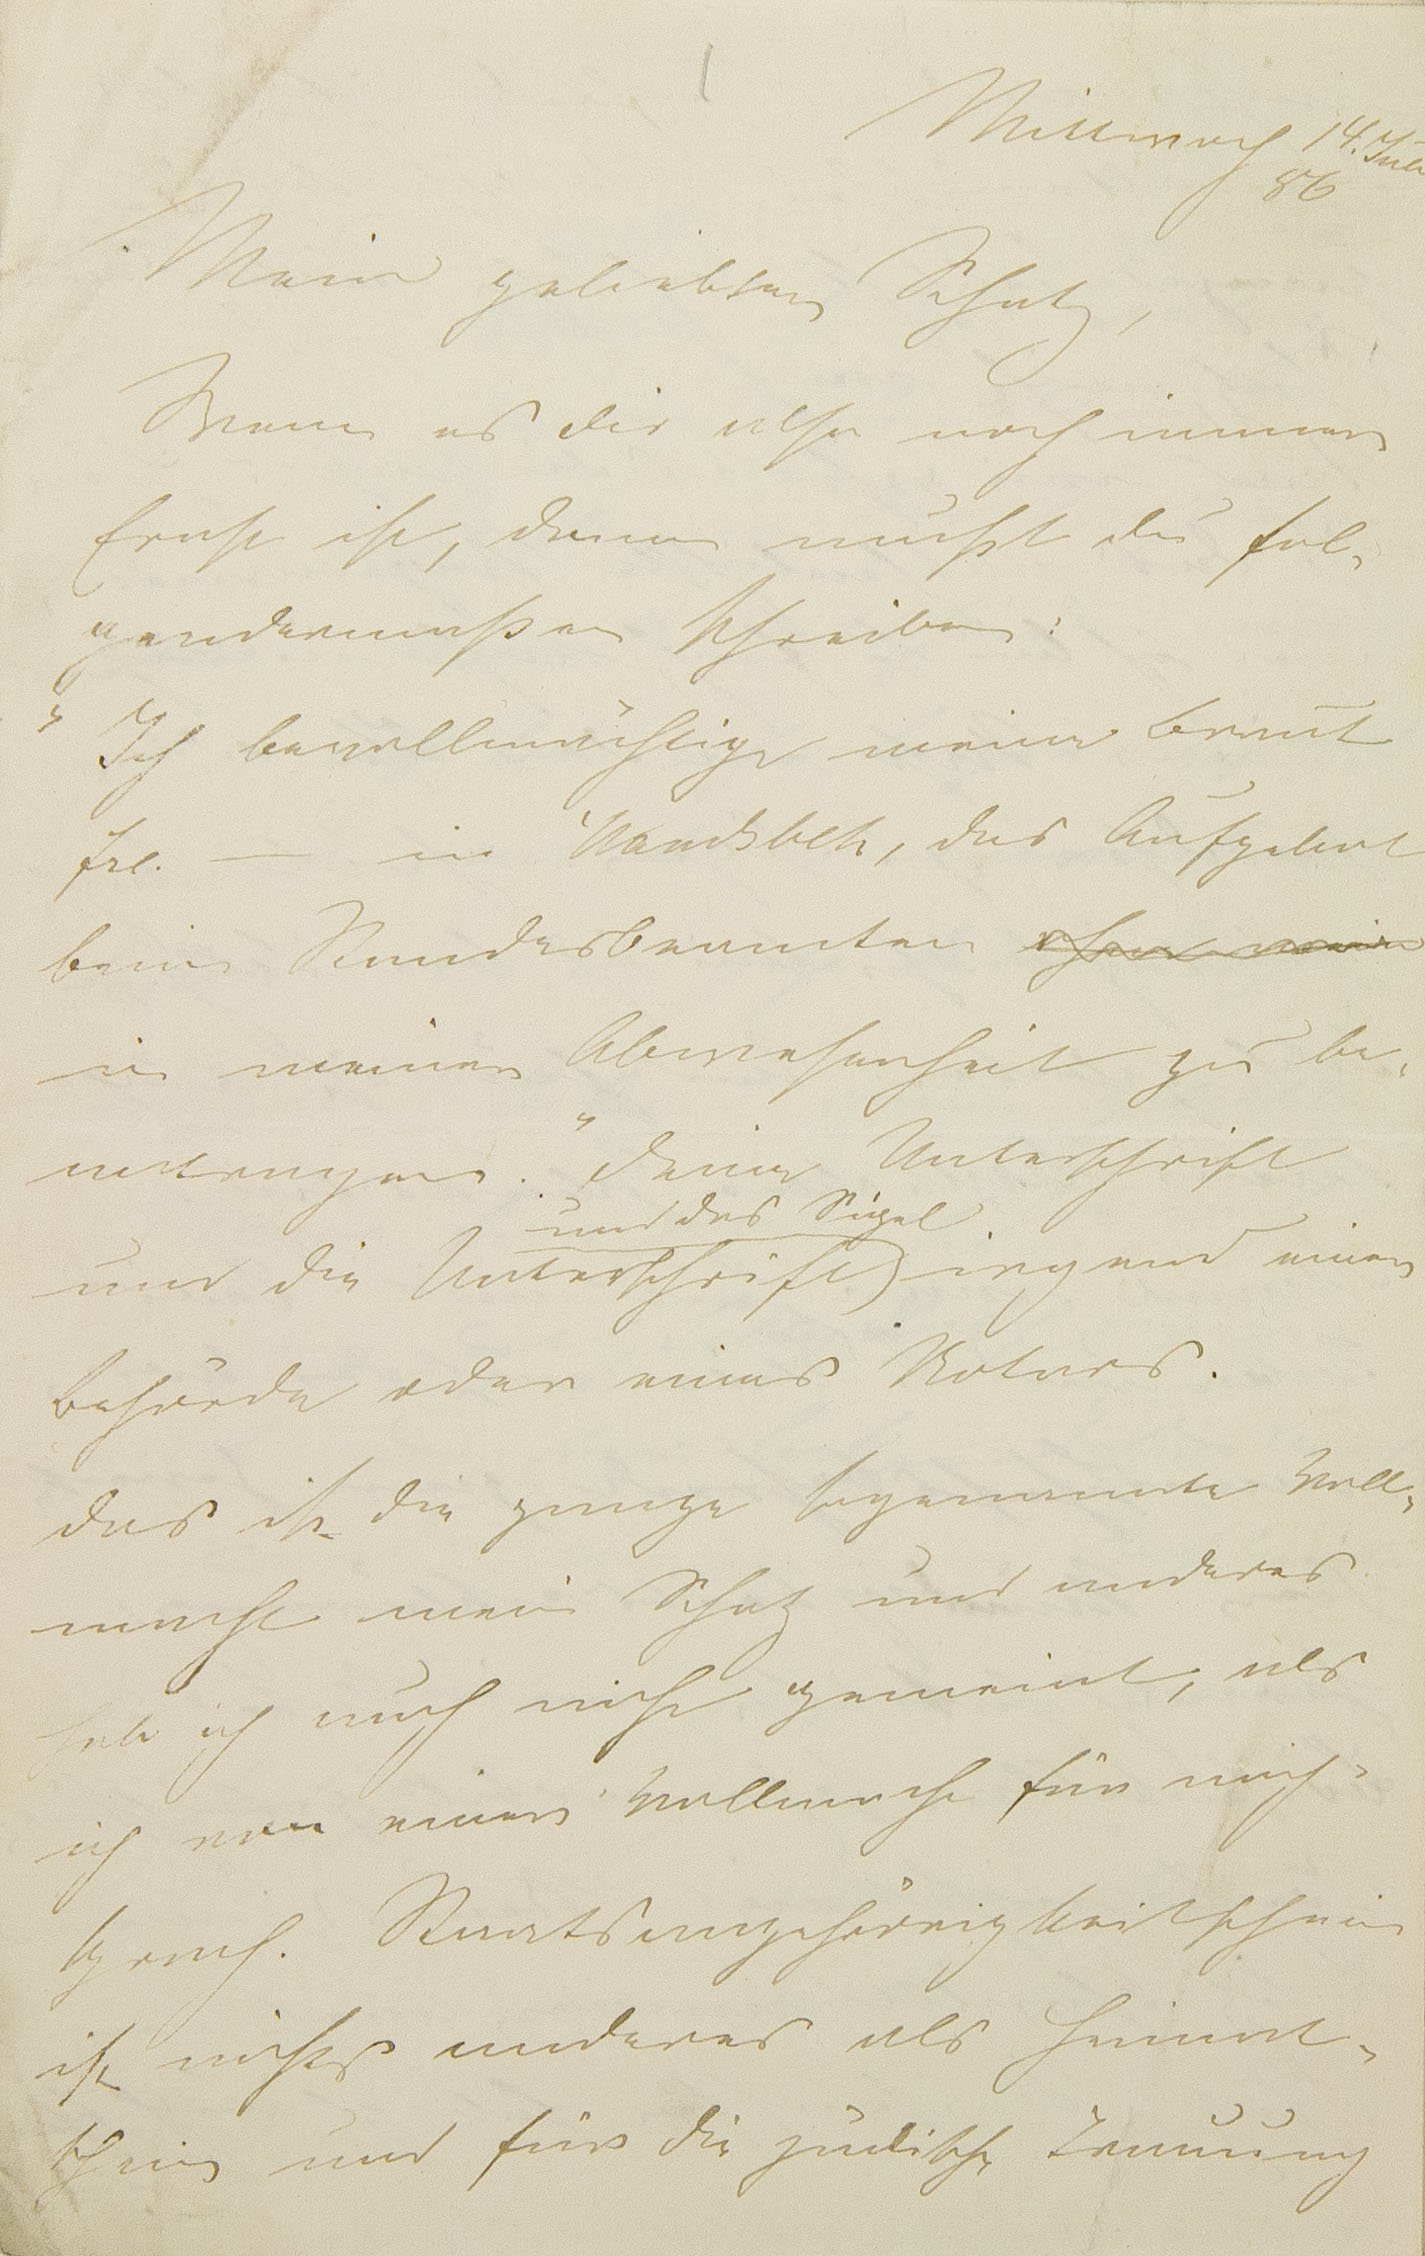 Mittwoch 14. Juli
86
Mein geliebter Schatz,
Wenn es Dir also noch immer
Ernst ist, dann mußt du fol-
gendermaßen schreiben:
„Ich bevollmächtige meine Braut
Frl. — in Wandsbek, das Aufgebot
beim Standesbeamten ohne mein
in meiner Abwesenheit zu be-
antragen." Deine Unterschrift
und das Sigel
und die Unterschrift irgend einer
Behörde oder eines Notars.
Das ist die ganze sogenannte Voll-
macht mein Schatz und anderes
hab ich auch nicht gemeint, als
ich von einer Vollmacht für mich
sprach. Staatsangehörigkeitsschein
ist nichts anderes als Heimat-
schein und für die jüdische Trauung